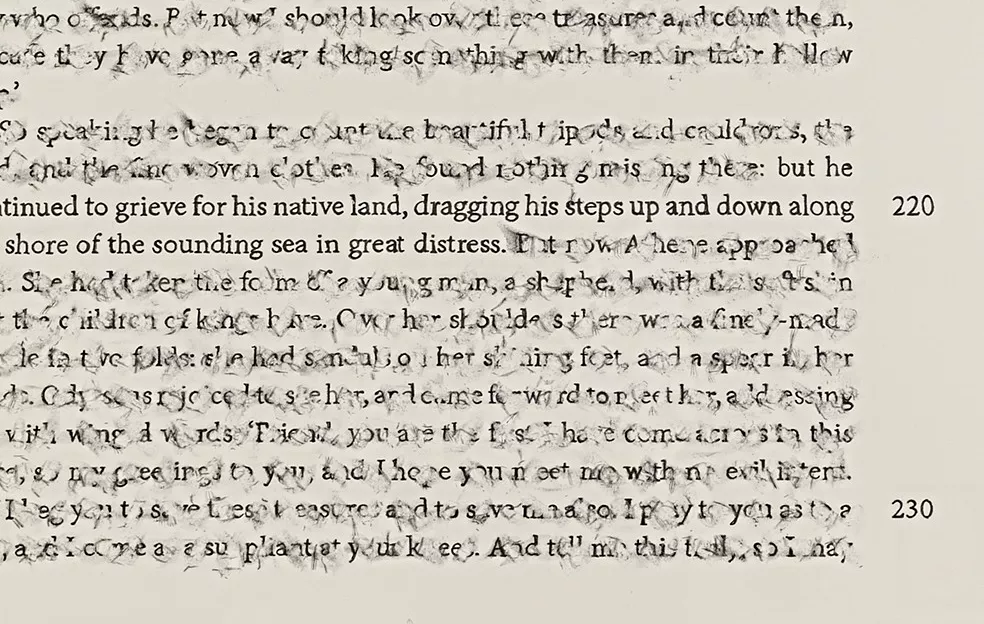 who offends. But now I should look over these treasures and count them,
they have gone away taking something with them in their hollow
So speaking he began to count the beautiful tripods and cauldrons, the
and the fine woven clothes. He found nothing missing there: but he
tinued to grieve for his native land, dragging his steps up and down along 220
shore of the sounding sea in great distress. But now Athene approached
She had taken the form of a young man, a shepherd, with the
the children of kings have. Over her shoulders there was a finely-mad
in two folds: she had sandals on her shining feet, and a spear in her
rejoiced to see her, and came forward to meet her, addressing
with winged words: 'Friend, you are the first I have come across in this
so my greetings to you, and I hope you meet me with no evil intent.
I beg you to save these treasures and to save me also. I pray to you as to a
and I come as a suppliant at your knees. And tell me this truly, so I may
230